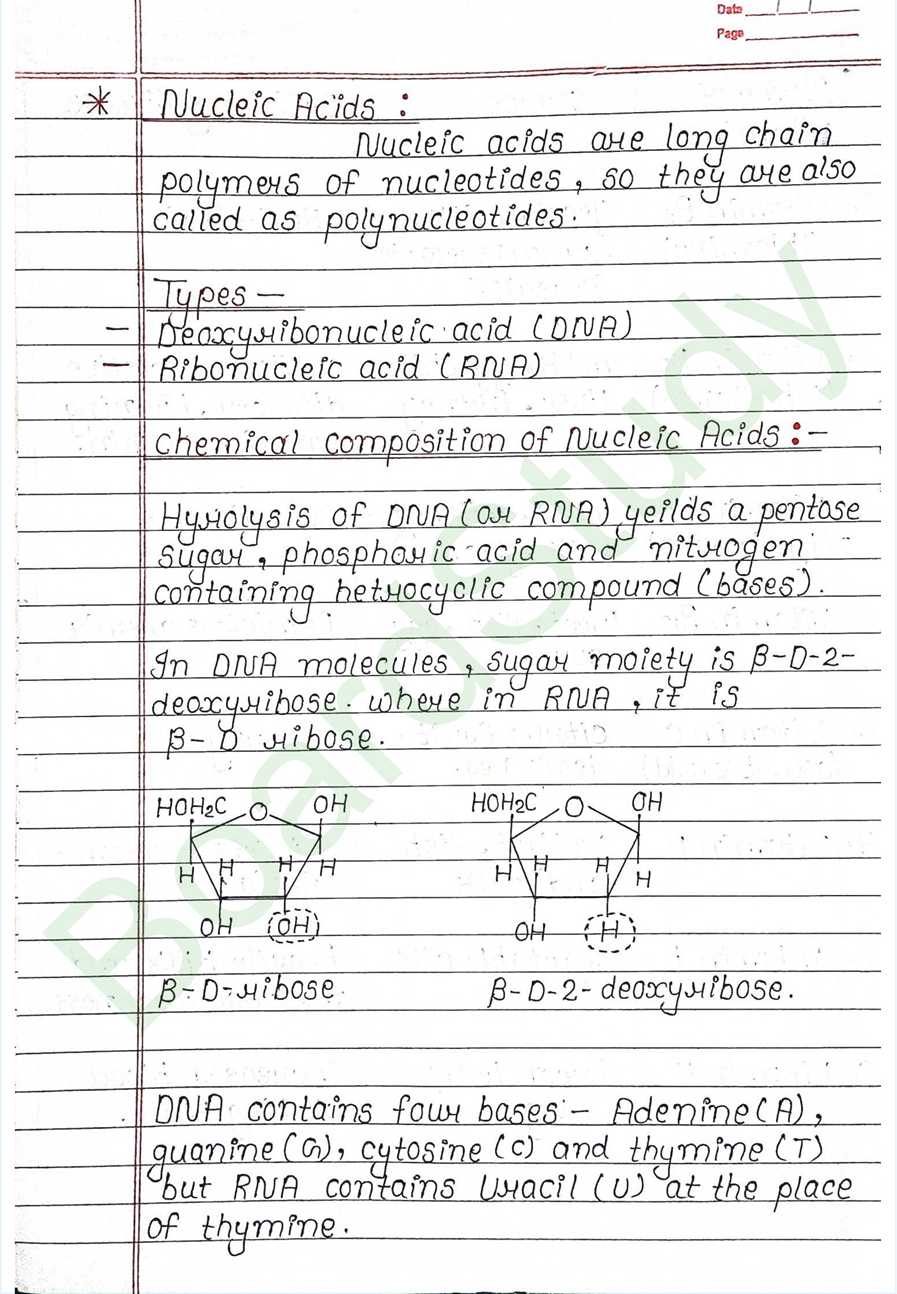 Date
Page
* Nucleic Acids :
Nucleic acids are long chain
polymers of nucleotides, so they are also
called as polynucleotides.
Types –
– Deoxyribonucleic acid (DNA)
– Ribonucleic acid (RNA)
Chemical composition of Nucleic Acids :–
Hyrolysis of DNA (or RNA) yeilds a pentose
sugar, phosphoric acid and nitrogen
containing hetrocyclic compound (bases).
In DNA molecules, sugar moiety is β-D-2-
deoxyribose. where in RNA, it is
β- D ribose.
HOH₂C O OH HOH₂C O OH
H H H H H H H H
OH OH OH H
β-D-ribose β-D-2-deoxyribose.
DNA contains four bases – Adenine(A),
guanine(G), cytosine (C) and thymine (T)
but RNA contains Uracil (U) at the place
of thymine.
BoardStudy